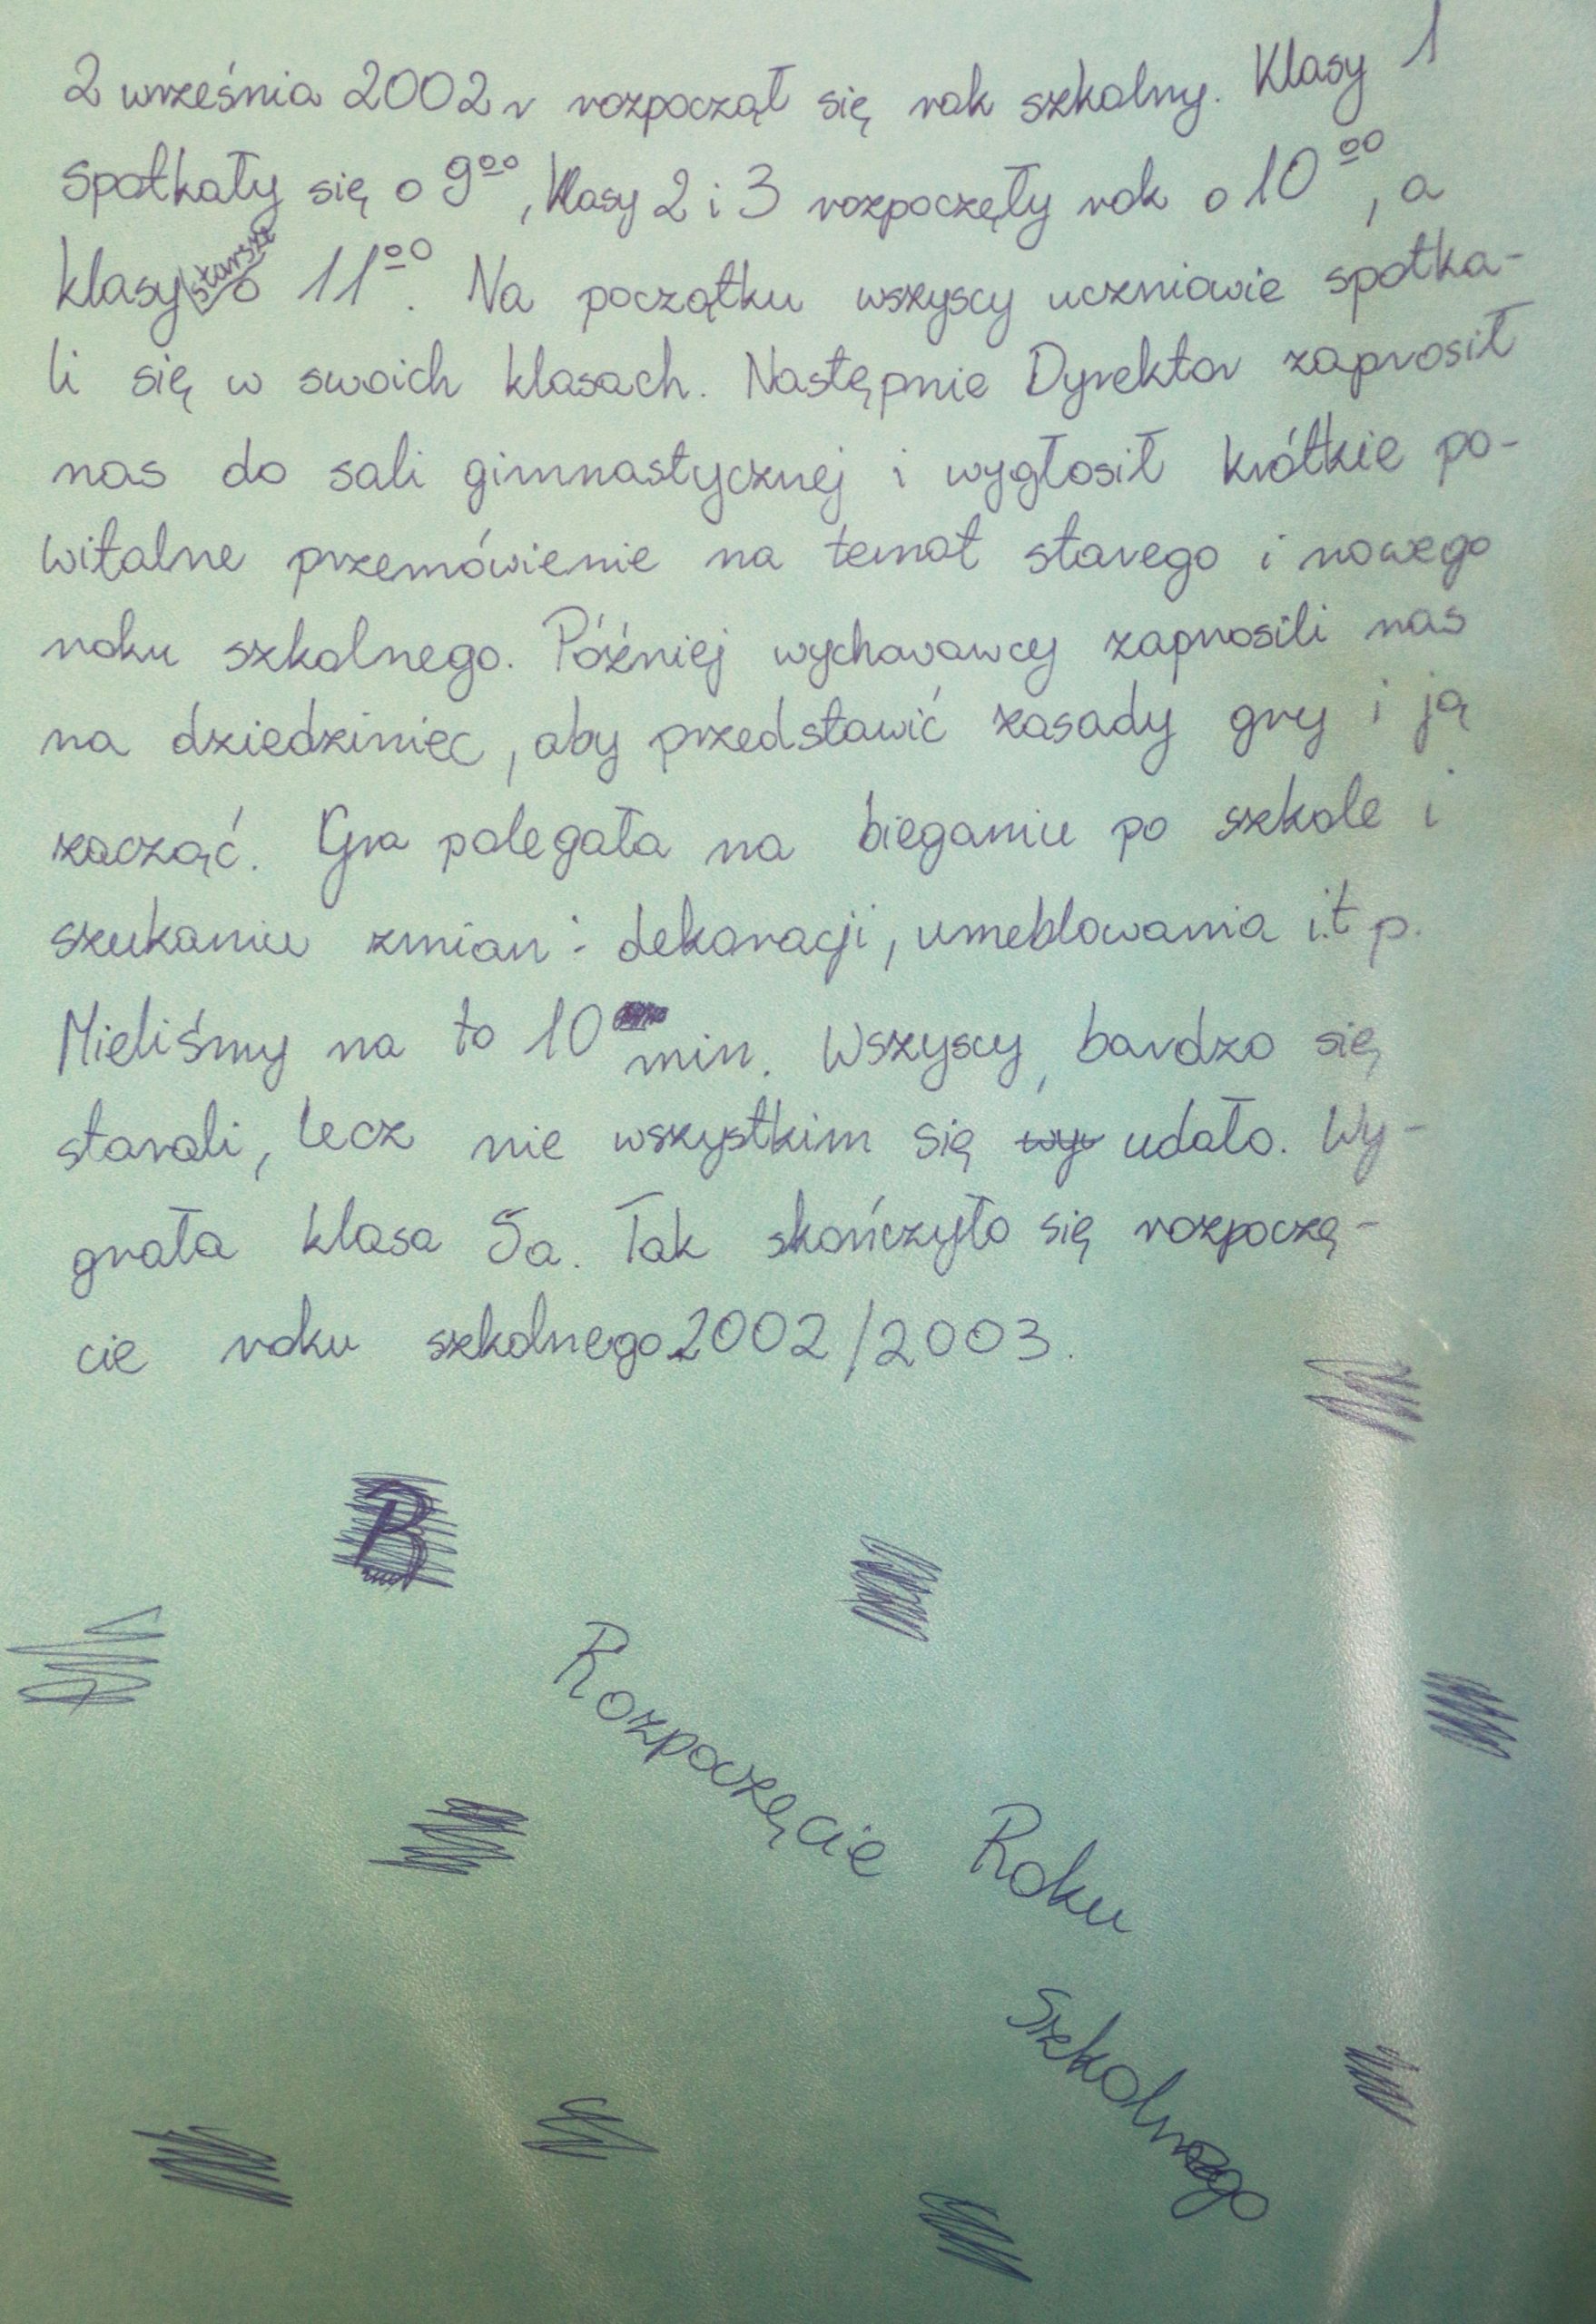 2 września 2002 r rozpoczął się rok szkolny. Klasy 1
spotkały się o 9⁰⁰, klasy 2 i 3 rozpoczęły rok o 10⁰⁰, a
klasy starsze o 11⁰⁰. Na początku wszyscy uczniowie spotka-
li się w swoich klasach. Następnie Dyrektor zaprosił
nas do sali gimnastycznej i wygłosił krótkie po-
witalne przemówienie na temat starego i nowego
roku szkolnego. Później wychowawcy zaprosili nas
na dziedziniec, aby przedstawić zasady gry i ją
zacząć. Gra polegała na bieganiu po szkole i
szukaniu zmian: dekoracji, umeblowania i.t p.
Mieliśmy na to 10 min. Wszyscy, bardzo się
starali, lecz nie wszystkim się wyr udało. Wy-
grała klasa 5a. Tak skończyło się rozpoczę-
cie roku szkolnego 2002/2003.
B
Rozpoczęcie
Roku
Szkolnego